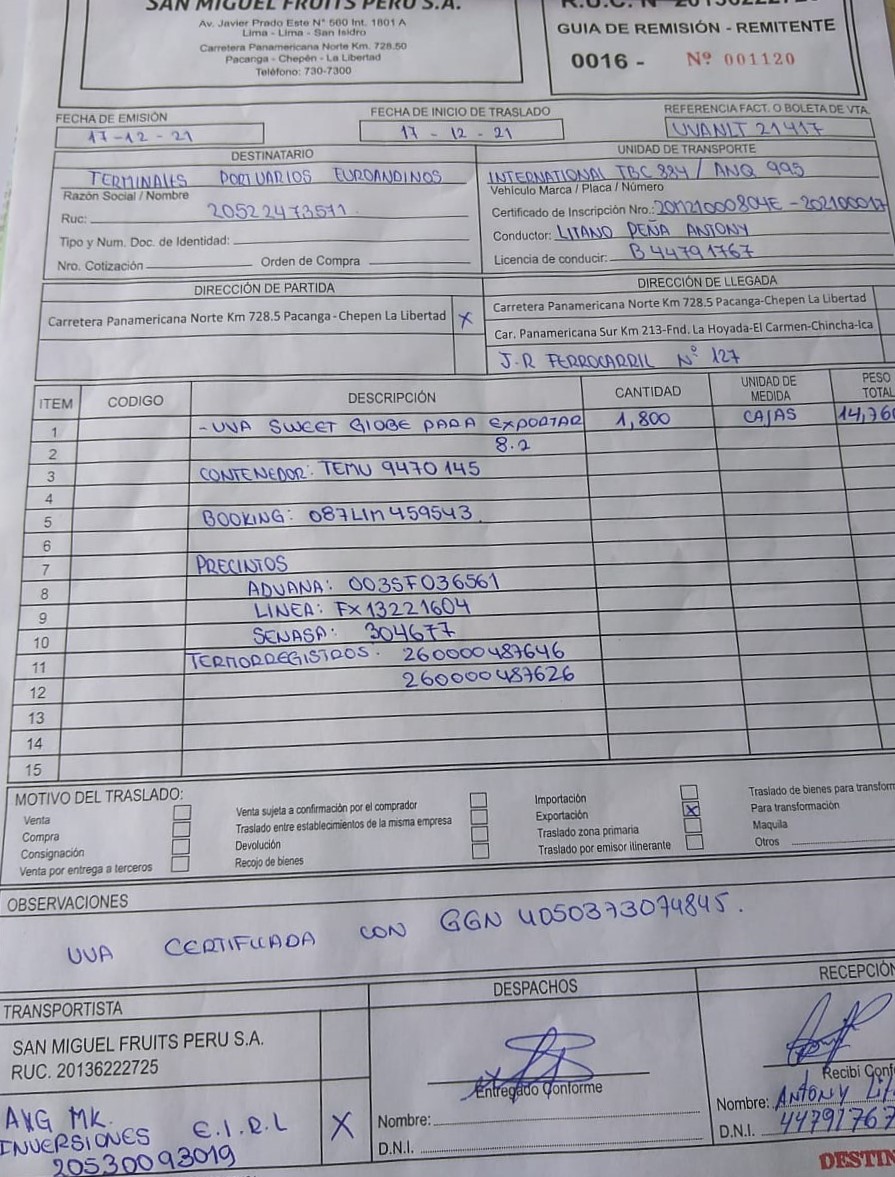 SAN MIGUEL FRUITS PERU S.A.
Av. Javier Prado Este N° 560 Int. 1801 A
Lima - Lima - San Isidro
Carretera Panamericana Norte Km. 728.50
Pacanga - Chepén - La Libertad
Teléfono: 730-7300
GUIA DE REMISIÓN - REMITENTE
0016 - Nº 001120
FECHA DE EMISIÓN
17-12-21
FECHA DE INICIO DE TRASLADO
17 - 12 - 21
REFERENCIA FACT. O BOLETA DE VTA.
UVANIT 21417
DESTINATARIO
TERMINALES PORTUARIOS EUROANDINOS
Razón Social / Nombre
Ruc: 20522473571
Tipo y Num. Doc. de Identidad:
Nro. Cotización Orden de Compra
UNIDAD DE TRANSPORTE
INTERNATIONAL TBC 884 / ANQ 995
Vehículo Marca / Placa / Número
Certificado de Inscripción Nro.:
Conductor: LITANO PEÑA ANTONY
Licencia de conducir: B 44791767
DIRECCIÓN DE PARTIDA
Carretera Panamericana Norte Km 728.5 Pacanga-Chepen La Libertad X
DIRECCIÓN DE LLEGADA
Carretera Panamericana Norte Km 728.5 Pacanga-Chepen La Libertad
Car. Panamericana Sur Km 213-Fnd. La Hoyada-El Carmen-Chincha-Ica
J.R FERROCARRIL N° 127
ITEM CODIGO DESCRIPCIÓN CANTIDAD UNIDAD DE MEDIDA PESO TOTAL
1 - UVA SWEET GLOBE PARA EXPORTAR 1,800 CAJAS 14,760
2 8.2
3 CONTENEDOR: TEMU 9470145
4
5 BOOKING: 087LIM459543
6
7 PRECINTOS
8 ADUANA: 003SF036561
9 LINEA: FX13221604
10 SENASA: 304677
11 TERMORREGISTROS: 260000487646
12 260000487626
13
14
15
MOTIVO DEL TRASLADO:
Venta
Compra
Consignación
Venta por entrega a terceros
Venta sujeta a confirmación por el comprador
Traslado entre establecimientos de la misma empresa
Devolución
Recojo de bienes
Importación
Exportación X
Traslado zona primaria
Traslado por emisor itinerante
Traslado de bienes para transform
Para transformación
Maquila
Otros
OBSERVACIONES
UVA CERTIFICADA CON GGN 4050373074845.
TRANSPORTISTA
SAN MIGUEL FRUITS PERU S.A.
RUC. 20136222725
MK.
INVERSIONES E.I.R.L X
20530093019
DESPACHOS
Entregado Conforme
Nombre:
D.N.I.
RECEPCIÓN
Recibí Conf
Nombre: ANTONY
D.N.I. 4479176
DESTIN